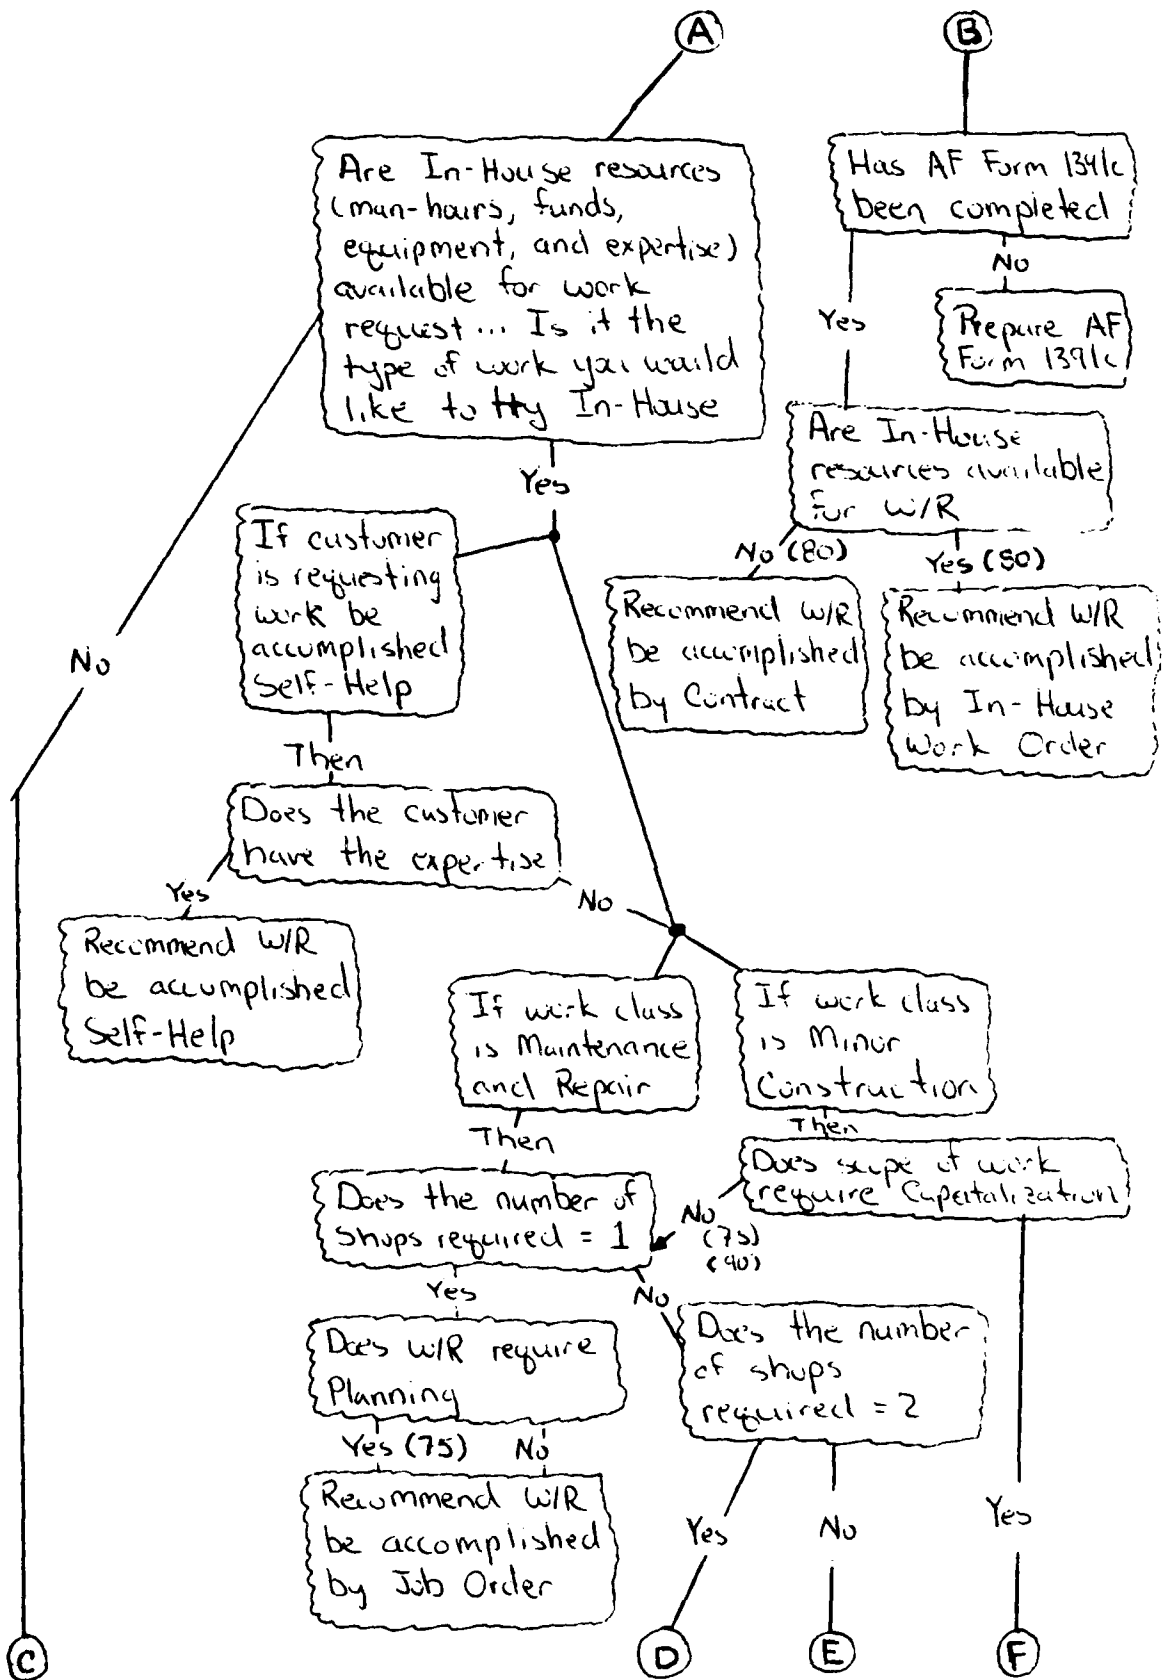 A
B
Are In-House resources
(man-hours, funds,
equipment, and expertise)
available for work
request... Is it the
type of work you would
like to try In-House
Has AF Form 1391c
been completed
No
Prepare AF
Form 1391c
Yes
Are In-House
resources available
for W/R
No (80)
Yes (80)
Recommend W/R
be accomplished
by Contract
Recommend W/R
be accomplished
by In-House
Work Order
Yes
If customer
is requesting
work be
accomplished
Self-Help
No
Then
Does the customer
have the expertise
Yes
No
Recommend W/R
be accomplished
Self-Help
If work class
is Maintenance
and Repair
If work class
is Minor
Construction
Then
Then
Does the number of
shops required = 1
Does scope of work
require Capertalization
No
(75)
(90)
Yes
No
Does W/R require
Planning
Does the number
of shops
required = 2
Yes (75)
No
Recommend W/R
be accomplished
by Job Order
Yes
No
Yes
C
D
E
F